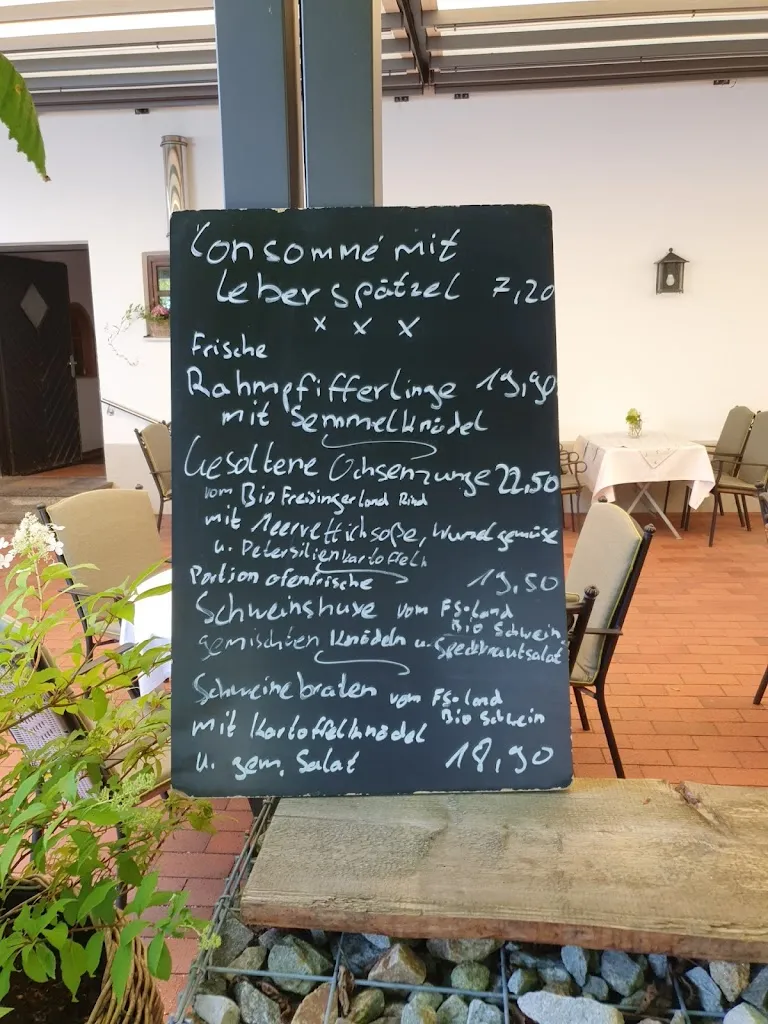 Consommé mit
Leberspätzel 7,20
x x x
Frische
Rahmpfifferlinge 19,90
mit Semmelknödel
Gesoltene Ochsenzunge 22,50
vom Bio Freisingerland Rind
mit Meerrettichsoße, Wurzelgemüse
u. Petersilienkartoffeln
Portion ofenfrische 19,50
Schweinshaxe vom FS-land
Bio Schwein
gemischten Knödeln u. Speckkrautsalat
Schweinebraten vom FS-land
Bio Schwein
mit Kartoffelknödel
u. gem. Salat 18,90